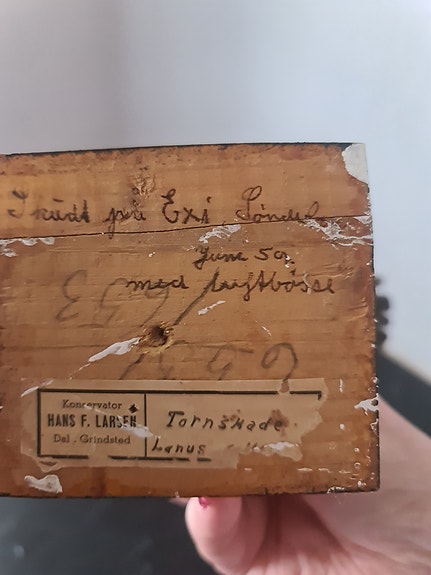 Skudt på Exi Söndal
June 59.
med luftbösse
Konservator
HANS F. LARSEN
Dal . Grindsted
Tornskade
Lanus